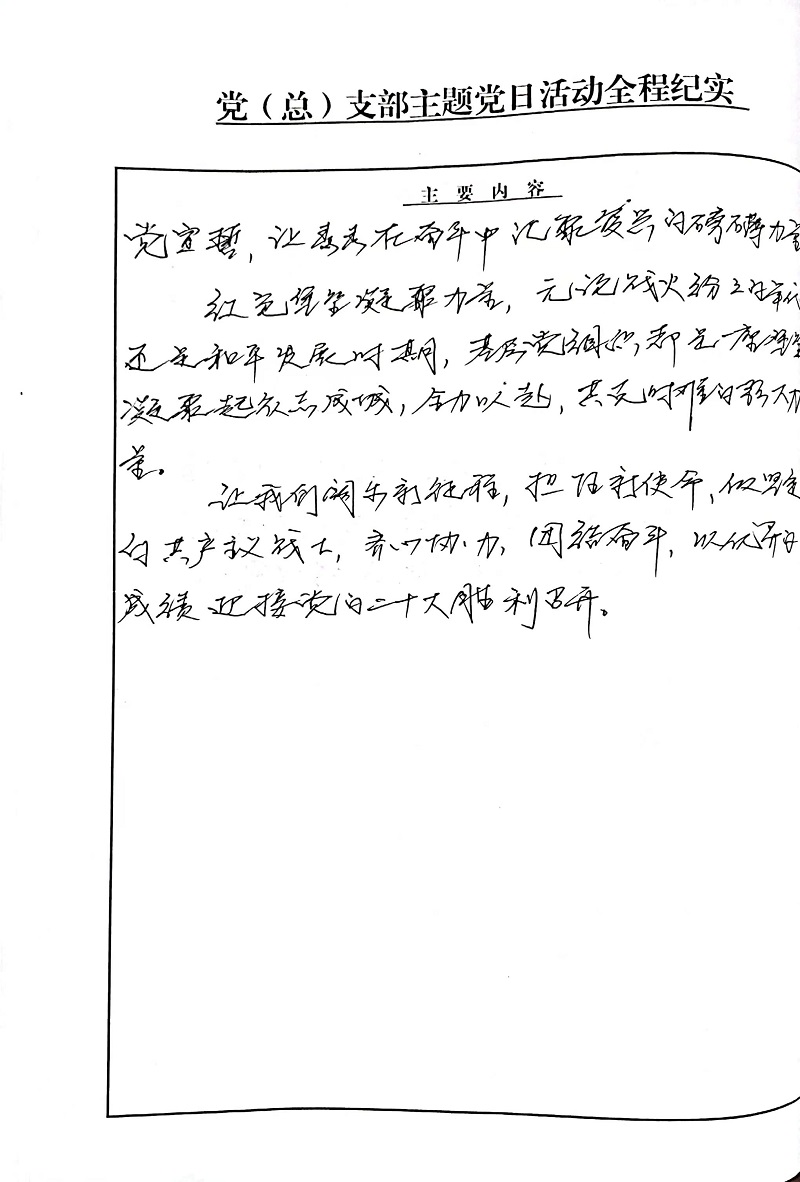 党（总）支部主题党日活动全程纪实
主要内容
党宣誓，让青春在奋斗中汇聚复兴的磅礴力量
红色堡垒凝聚力量，无论战火纷飞的年代
还是和平发展时期，基层党组织都是一座堡垒
凝聚起众志成城，全力以赴，共克时难的强大力
量。
让我们阔步新征程，担任新使命，做坚定
的共产主义战士，齐心协力，团结奋斗，以优异的
成绩迎接党的二十大胜利召开。